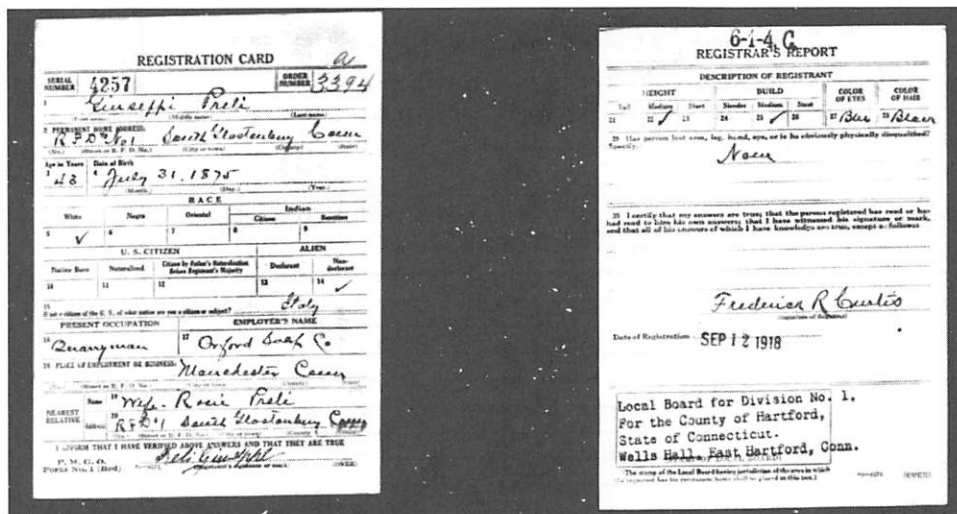 REGISTRATION CARD
a
SERIAL NUMBER 4257
ORDER NUMBER 3394
1 Giuseppi Preli
(First name) (Middle name) (Last name)
2 PERMANENT HOME ADDRESS:
R F D No 1 South Glastonbury Conn
(No.) (Street or R. F. D. No.) (City or town) (County) (State)
Age in Years Date of Birth
3 43 4 July 31. 1875
(Month.) (Day.) (Year.)
RACE
White Negro Oriental Indian
Citizen Noncitizen
5 ✓ 6 7 8 9
U. S. CITIZEN ALIEN
Native Born Naturalized Citizen by Father's Naturalization Before Registrant's Majority Declarant Non-declarant
10 11 12 13 14 ✓
15 If not a citizen of the U. S., of what nation are you a citizen or subject? Italy
PRESENT OCCUPATION EMPLOYER'S NAME
16 Quarryman 17 Orford Soap Co
18 PLACE OF EMPLOYMENT OR BUSINESS:
Manchester Conn
(No.) (Street or R. F. D. No.) (City or town) (County) (State)
NEAREST RELATIVE
Name 19 Wife. Rosie Preli
Address 20 R F D 1 South Glastonbury Conn
(No.) (Street or R. F. D. No.) (City or town) (County) (State)
I AFFIRM THAT I HAVE VERIFIED ABOVE ANSWERS AND THAT THEY ARE TRUE
P. M. G. O.
Form No. 1 (Red)
Preli Giuseppi
(Registrant's signature or mark) (OVER)
6-1-4 C
REGISTRAR'S REPORT
DESCRIPTION OF REGISTRANT
HEIGHT BUILD COLOR OF EYES COLOR OF HAIR
Tall Medium Short Slender Medium Stout
21 22 ✓ 23 24 25 ✓ 26 27 Blue 28
29 Has person lost arm, leg, hand, eye, or is he obviously physically disqualified?
Specify:
30 I certify that my answers are true; that the person registered has read or has
had read to him his own answers; that I have witnessed his signature or mark,
and that all of his answers of which I have knowledge are true, except as follows:
Frederick R Curtis
(Signature of Registrar)
Date of Registration SEP 12 1918
Local Board for Division No. 1,
For the County of Hartford,
State of Connecticut.
Wells Hall. East Hartford, Conn.
(The stamp of the Local Board having jurisdiction of the area in which
the registrant has his permanent home shall be placed in this box.)
(OVER)